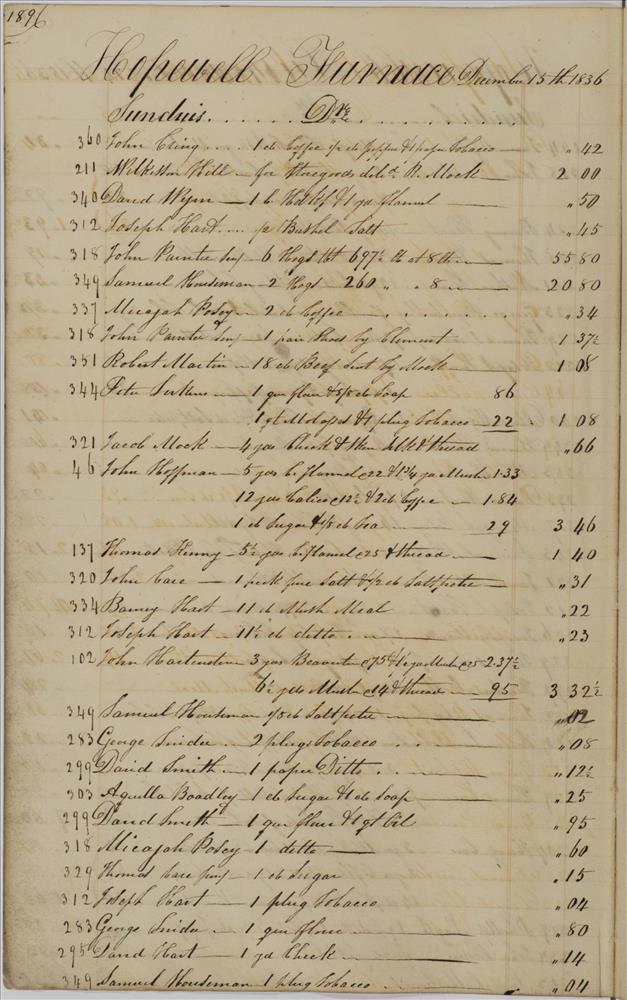 1896
Hopewell Furnace December 15th 1836
Sundries Drs
360 John Cring 1 lb Coffee pepper & 1 paper Tobacco " 42
211 Wilkeston Hill for Storegoods deld R. Mock 2 00
340 David Wynn 1 Hdkf & 1 yd flannel " 50
312 Joseph Hart Bushel Salt " 45
318 John Painter Senr 6 Hogs Wt 697½ lb at 8 55 80
349 Samuel Houseman 2 Hogs 260 " " 8 20 80
337 Micajah Posey 2 lb Coffee " 34
318 John Painter Senr 1 pair Shoes by Clement 1 37½
351 Robert Martin 18 lb Beef Sent by Mock 1 08
344 Peter 1 qur flour & lb Soap 86
1 qt Molasses & 1 plug Tobacco 22 1 08
321 Jacob Mock 4 yds Check & Skn Silk & thread " 66
46 John Hoffman 5 yds flannel @ 22 & 1¾ yd Muslin 1.33
12 yds Calico @ 12½ & 2 lb Coffee 1.84
1 lb Sugar & lb Tea 29 3 46
137 Thomas Henry 5½ yds flannel @ 25 & thread 1 40
320 John Care 1 peck fine Salt & ½ lb Saltpetre " 31
334 Barney Hart 11 lb Mush Meal " 22
312 Joseph Hart 11½ lb ditto " 23
102 John Hartenstine 3 yds @ 75 & yd Muslin @ 25 2.37½
6½ yds Muslin @ 14 & thread 95 3 32½
349 Samuel Houseman lb Saltpetre " 02
283 George Snider 2 plugs Tobacco " 08
299 David Smith 1 paper Ditto " 12½
303 Aquilla Boadley 1 lb Sugar & 1 lb Soap " 25
299 David Smith 1 qur flour & 1 qt Oil " 95
318 Micajah Posey 1 ditto " 60
329 Thomas Care Junr 1 lb Sugar " 15
312 Joseph Hart 1 plug Tobacco " 04
283 George Snider 1 qur flour " 80
295 David Hart 1 yd Check " 14
349 Samuel Houseman 1 plug Tobacco " 04